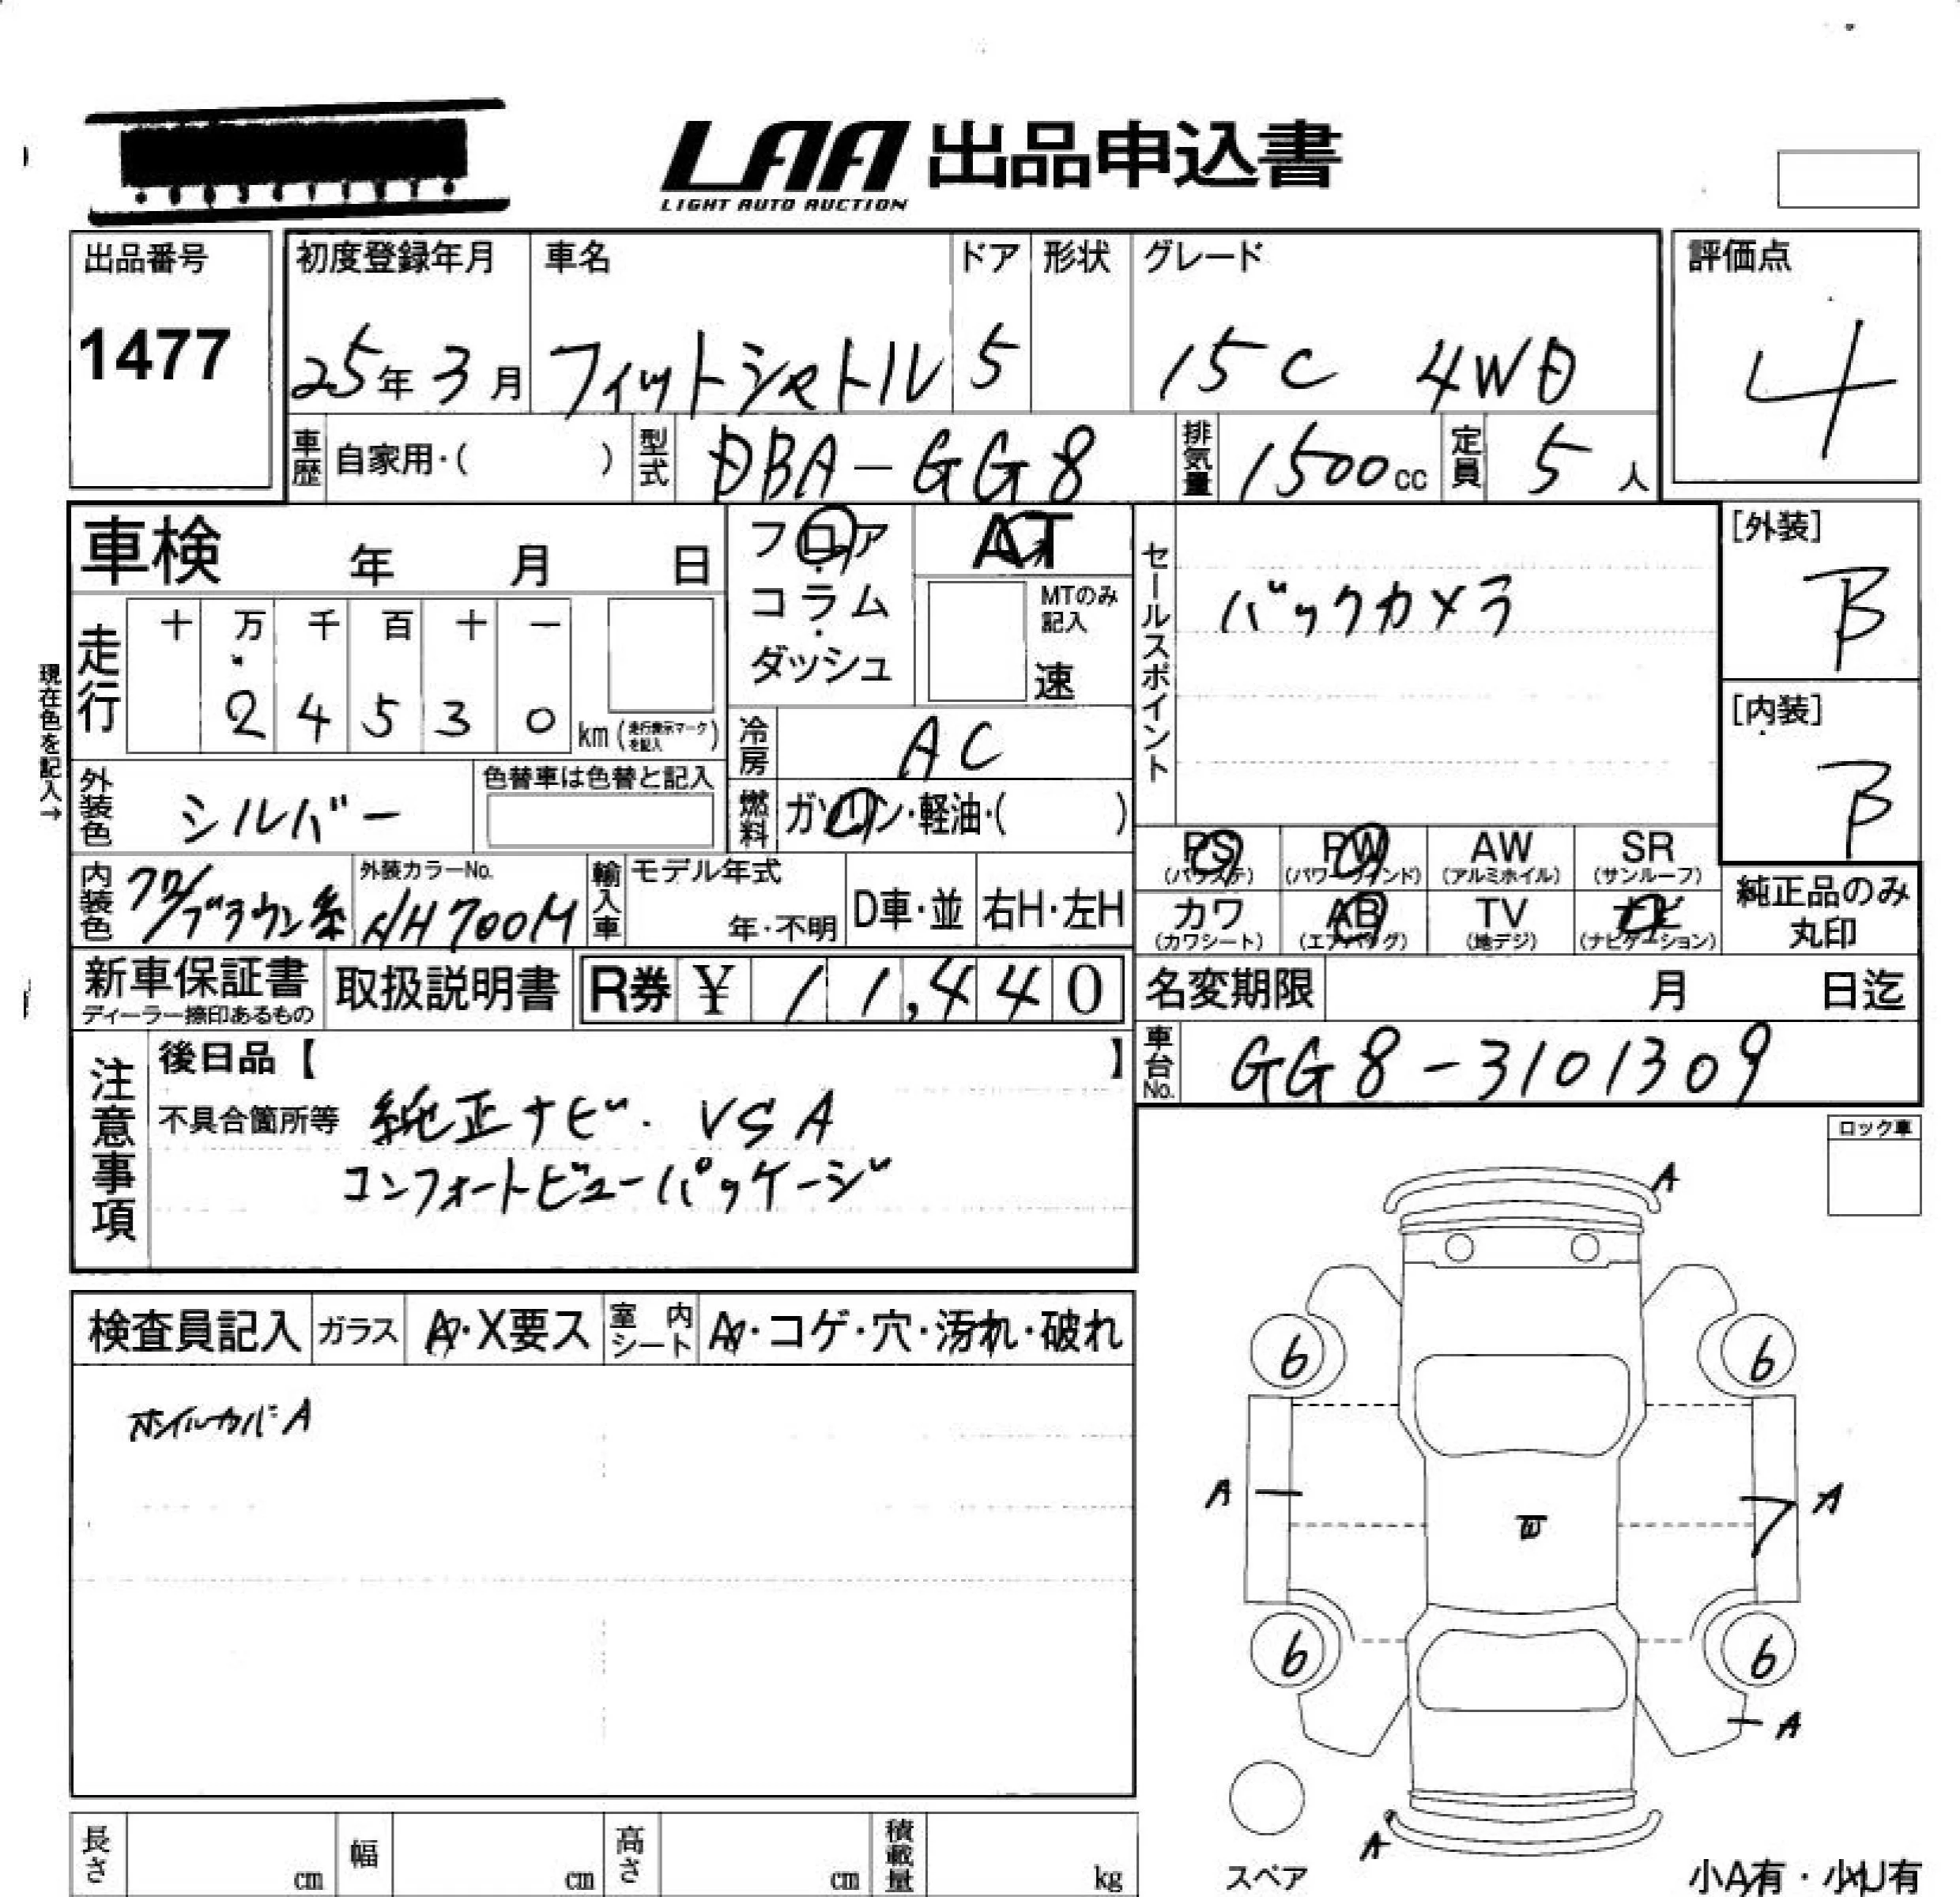 LAA 出品申込書
LIGHT AUTO AUCTION
出品番号
1477
初度登録年月 車名 ドア 形状 グレード
25年 3月 フィットシャトル 5 15C 4WD
評価点
4
車歴 自家用・( ) 型式 DBA-GG8 排気量 1500cc 定員 5人
車検 年 月 日
フロア・コラム・ダッシュ
AT
MTのみ記入
速
セールスポイント
バックカメラ
[外装]
B
[内装]
B
現在色を記入→
走行 十 万 千 百 十 一
2 4 5 3 0 km (走行表示マークを記入)
冷房 AC
外装色 シルバー 色替車は色替と記入
燃料 ガソリン・軽油・( )
内装色 ブラウン系 外装カラーNo. NH700M 輸入車 モデル年式 年・不明 D車・並 右H・左H
PS (パワステ) PW (パワーウィンド) AW (アルミホイル) SR (サンルーフ)
カワ (カワシート) AB (エアバッグ) TV (地デジ) ナビ (ナビゲーション)
純正品のみ丸印
新車保証書 ディーラー捺印あるもの 取扱説明書 R券 ¥ 11,440
名変期限 月 日迄
車台No. GG8-3101309
注意事項
後日品【 】
不具合箇所等 純正ナビ. VSA
コンフォートビューパッケージ
ロック車
検査員記入 ガラス A・X要ス 室内シート A・コゲ・穴・汚れ・破れ
ホイルカバーA
A
6 6
A A
W
6 6
A
A
スペア
小A有・小U有
長さ cm 幅 cm 高さ cm 積載量 kg